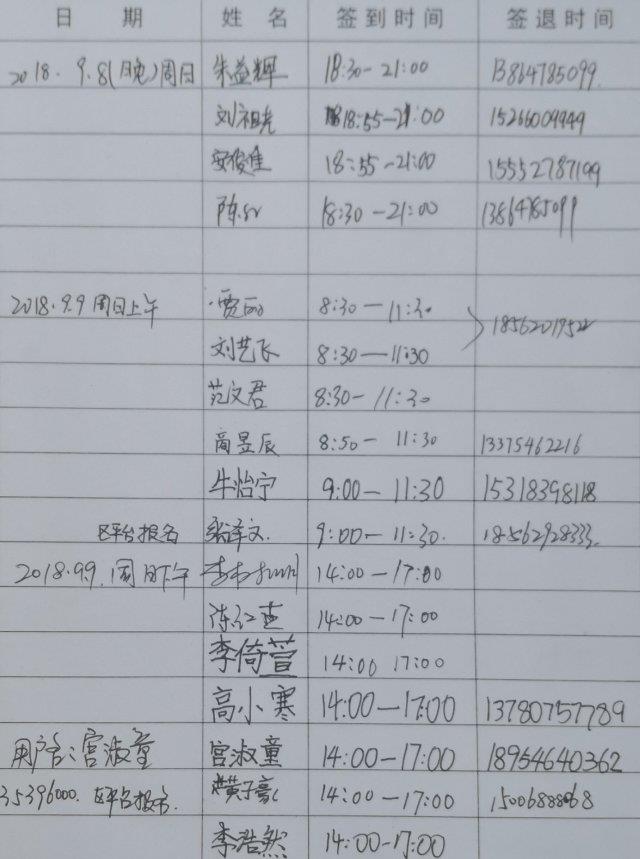 日 期 姓 名 签到时间 签退时间
2018. 9.8(晚)周日 朱益辉 18:30-21:00 13864785099
刘祖光 18:55-21:00 15266009949
安俊佳 18:55-21:00 15552787199
陈 18:30-21:00 13864785099
2018.9.9 周日上午 贾丽 8:30-11:30
18562019522
刘艺飞 8:30-11:30
范文君 8:30-11:30
高昱辰 8:50-11:30 13375462216
牛怡宁 9:00-11:30 15318398118
平台报名 张泽文 9:00-11:30. 18562928333
2018.9.9.周日下午 李 14:00-17:00
陈红燕 14:00-17:00
李倚萱 14:00 17:00
高小寒 14:00-17:00 13780757789
用户名:宫淑童 宫淑童 14:00-17:00 18954640362
35396000. 平台报名. 黄子豪 14:00-17:00 15006888068
李浩然 14:00-17:00